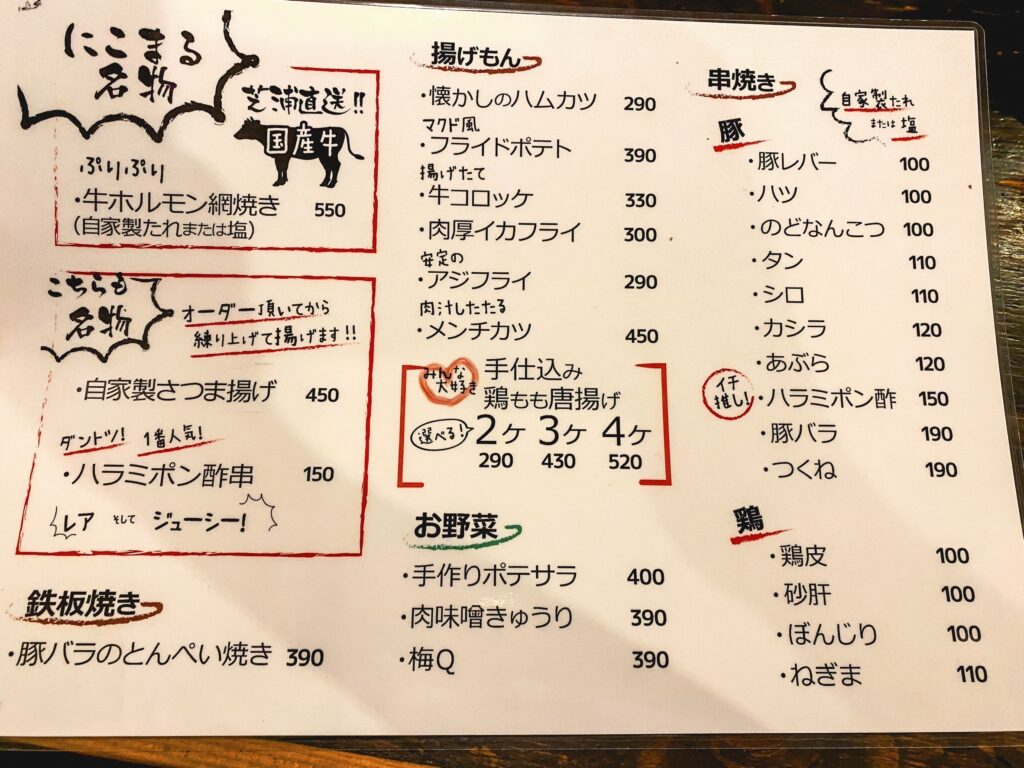 にこまる
名物
芝浦直送!!
国産牛
ぷりぷり
・牛ホルモン網焼き 550
(自家製たれまたは塩)
こちらも
名物
オーダー頂いてから
練り上げて揚げます!!
・自家製さつま揚げ 450
ダントツ! 1番人気!
・ハラミポン酢串 150
レア そして ジューシー!
鉄板焼き
・豚バラのとんぺい焼き 390
揚げもん
・懐かしのハムカツ 290
マクド風
・フライドポテト 390
揚げたて
・牛コロッケ 330
・肉厚イカフライ 300
安定の
・アジフライ 290
肉汁したたる
・メンチカツ 450
みんな
大好き
手仕込み
鶏もも唐揚げ
選べる! 2ケ 3ケ 4ケ
290 430 520
お野菜
・手作りポテサラ 400
・肉味噌きゅうり 390
・梅Q 390
串焼き
自家製たれ
または塩
豚
・豚レバー 100
・ハツ 100
・のどなんこつ 100
・タン 110
・シロ 110
・カシラ 120
・あぶら 120
イチ
推し!
・ハラミポン酢 150
・豚バラ 190
・つくね 190
鶏
・鶏皮 100
・砂肝 100
・ぼんじり 100
・ねぎま 110